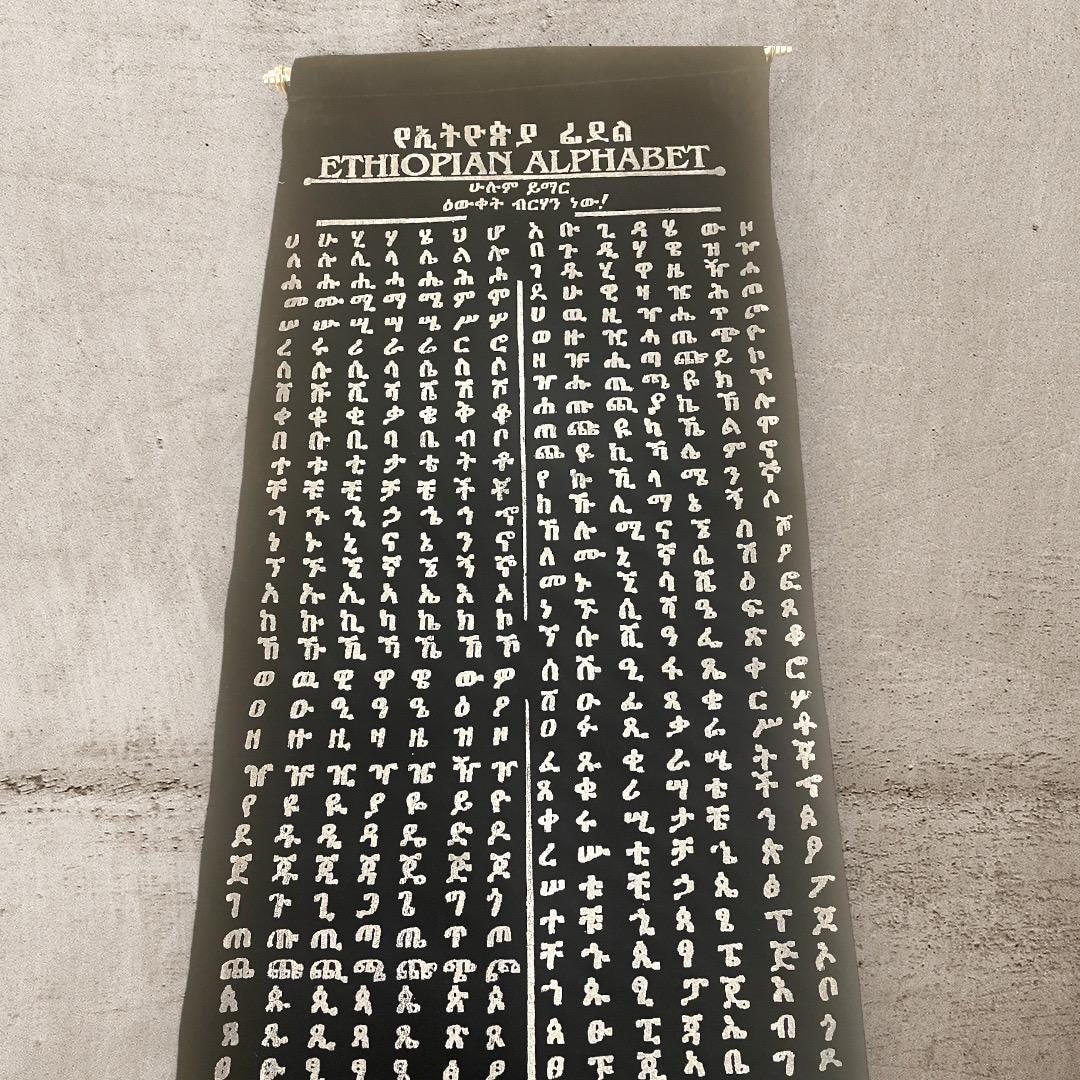 የኢትዮጵያ ፊደል
ETHIOPIAN ALPHABET
ሁሉም ይማር
ዕውቀት ብርሃን ነው!
ሀ ሁ ሂ ሃ ሄ ህ ሆ
ለ ሉ ሊ ላ ሌ ል ሎ
ሐ ሑ ሒ ሓ ሔ ሕ ሖ
መ ሙ ሚ ማ ሜ ም ሞ
ሠ ሡ ሢ ሣ ሤ ሥ ሦ
ረ ሩ ሪ ራ ሬ ር ሮ
ሰ ሱ ሲ ሳ ሴ ስ ሶ
ሸ ሹ ሺ ሻ ሼ ሽ ሾ
ቀ ቁ ቂ ቃ ቄ ቅ ቆ
በ ቡ ቢ ባ ቤ ብ ቦ
ተ ቱ ቲ ታ ቴ ት ቶ
ቸ ቹ ቺ ቻ ቼ ች ቾ
ኀ ኁ ኂ ኃ ኄ ኅ ኆ
ነ ኑ ኒ ና ኔ ን ኖ
ኘ ኙ ኚ ኛ ኜ ኝ ኞ
አ ኡ ኢ ኣ ኤ እ ኦ
ከ ኩ ኪ ካ ኬ ክ ኮ
ኸ ኹ ኺ ኻ ኼ ኽ ኾ
ወ ዉ ዊ ዋ ዌ ው ዎ
ዐ ዑ ዒ ዓ ዔ ዕ ዖ
ዘ ዙ ዚ ዛ ዜ ዝ ዞ
ዠ ዡ ዢ ዣ ዤ ዥ ዦ
የ ዩ ዪ ያ ዬ ይ ዮ
ደ ዱ ዲ ዳ ዴ ድ ዶ
ጀ ጁ ጂ ጃ ጄ ጅ ጆ
ገ ጉ ጊ ጋ ጌ ግ ጎ
ጠ ጡ ጢ ጣ ጤ ጥ ጦ
ጨ ጩ ጪ ጫ ጬ ጭ ጮ
ጰ ጱ ጲ ጳ ጴ ጵ ጶ
ጸ ጹ ጺ ጻ ጼ ጽ ጾ
ፀ ፁ ፂ ፃ ፄ ፅ ፆ
አ ቡ ጊ ዳ ሄ ው ዞ
በ ጉ ዲ ሃ ዌ ዝ ዦ
ገ ዱ ሂ ዋ ዜ ዥ ሖ
ደ ሁ ዊ ዛ ዤ ሕ ጦ
ሀ ዉ ዚ ዣ ሔ ጥ ጮ
ወ ዙ ዢ ሓ ጤ ጭ ዮ
ዘ ዡ ሒ ጣ ጬ ይ ኮ
ዠ ሑ ጢ ጫ ዬ ክ ኾ
ሐ ጡ ጪ ያ ኬ ኽ ሎ
ጠ ጩ ዪ ካ ኼ ል ሞ
ጨ ዩ ኪ ኻ ሌ ም ኖ
የ ኩ ኺ ላ ሜ ን ኞ
ከ ኹ ሊ ማ ኔ ኝ ሶ
ኸ ሉ ሚ ና ኜ ስ ሾ
ለ ሙ ኒ ኛ ሴ ሽ ዖ
መ ኑ ኚ ሳ ሼ ዕ ፎ
ነ ኙ ሲ ሻ ዔ ፍ ጾ
ኘ ሱ ሺ ዓ ፌ ጽ ቆ
ሰ ሹ ዒ ፋ ጼ ቅ ሮ
ሸ ዑ ፊ ጻ ቄ ር ሦ
ዐ ፉ ጺ ቃ ሬ ሥ ቶ
ፈ ጹ ቂ ራ ሤ ት ቾ
ጸ ቁ ሪ ሣ ቴ ች ኆ
ቀ ሩ ሢ ታ ቼ ኅ ጶ
ረ ሡ ቲ ቻ ኄ ጵ ፆ
ሠ ቱ ቺ ኃ ጴ ፅ ፖ
ተ ቹ ኂ ጳ ፄ ፕ ጆ
ቸ ኁ ጲ ፃ ፔ ጅ ኦ
ኀ ጱ ፂ ፓ ጄ እ ቦ
ጰ ፁ ፒ ጃ ኤ ብ ጎ
ፀ ፑ ጂ ኣ ቤ ግ ዶ